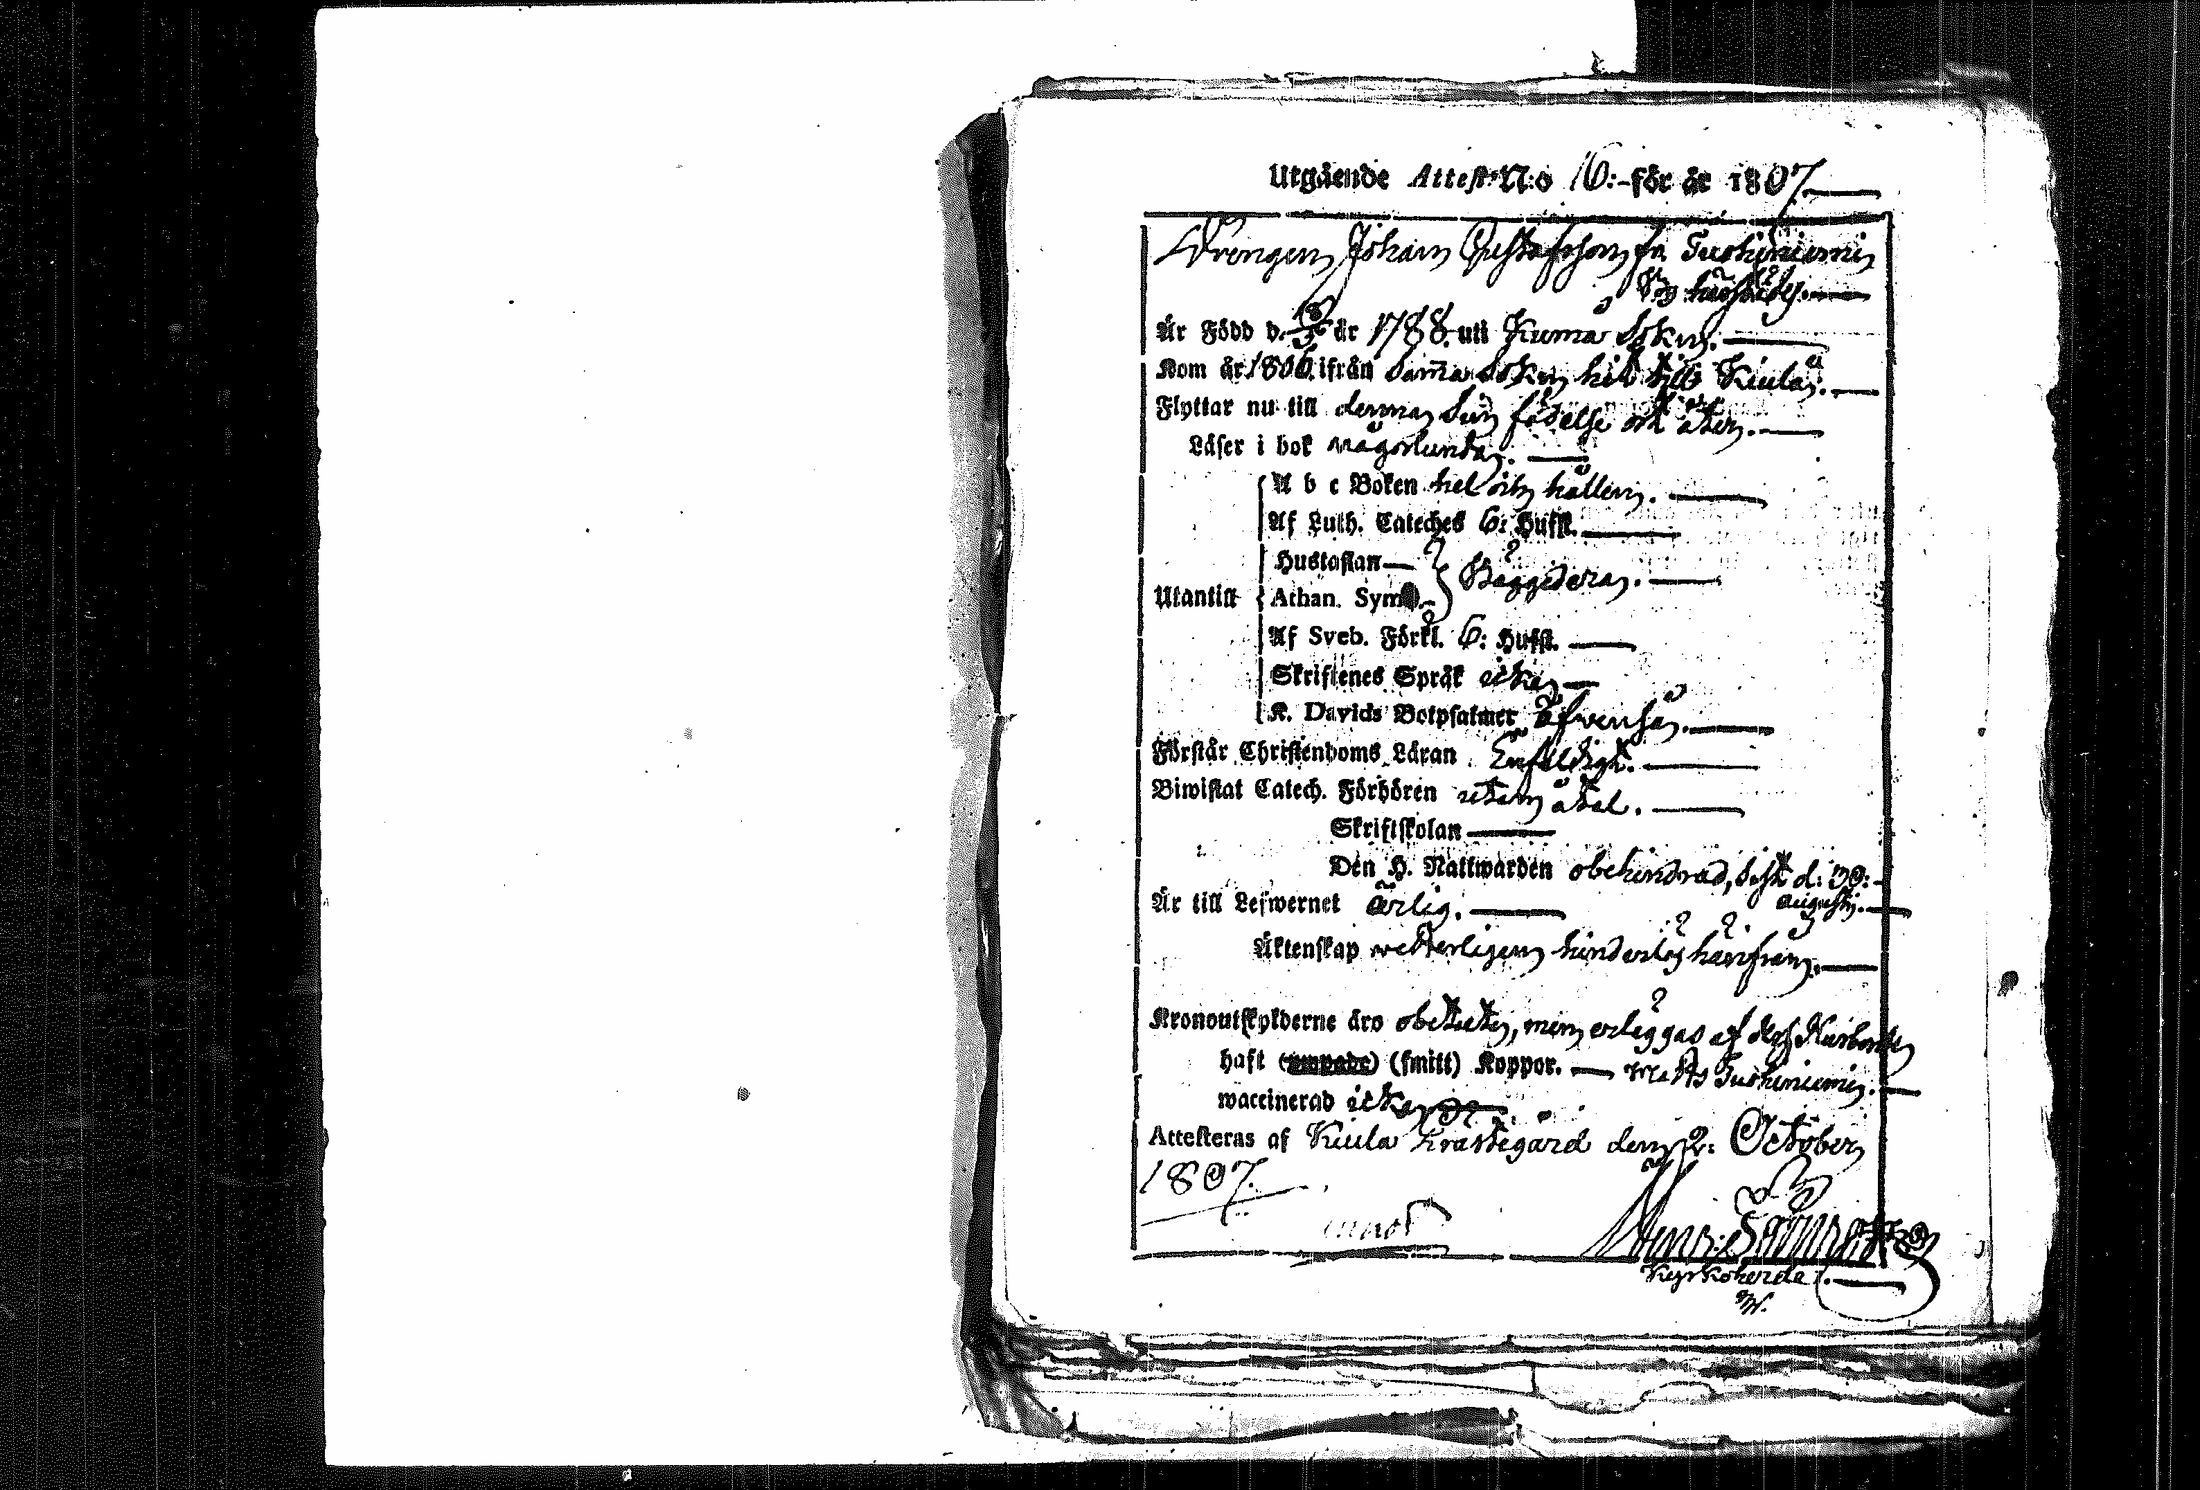 Utgående Attest N:o 16:- för år 1807
Drengen Johan Gustafsson fr. Tuohiniemi
Är Född d. 18/3 år 1788 uti Kumå Sokn.
Kom år 1806 ifrån samma Sokn hit till Kiula.
Flyttar nu till denna sin födelse ort åter.
Läser i bok någorlunda.
A b c Boken hel och hållen.
Af Luth. Cateches 6: Hufst.
Hustaflan
Utantill
Athan. Symb. Baggedera.
Af Sveb. Förkl. 6: Hufst.
Skriftenes Språk icke
K. Davids Botpsalmer äfvenså.
Förstår Christendoms Läran Enfeldigt.
Biwistat Catech. Förhören utan åtal.
Skriftskolan
Den H. Nattwarden obehindrad, sist d: 30:
Augusti.
Är till Lefwernet ärlig.
Äktenskap wetterligen hinderlös härifrån.
Kronoutskylderne äro obetalte, men erläggas af dess Husbonde
haft (smitt) Koppor. Matts Tuohiniemi.
waccinerad icke
Attesteras af Kiula Prästegård den 2: October
1807.
Kyrkoherde